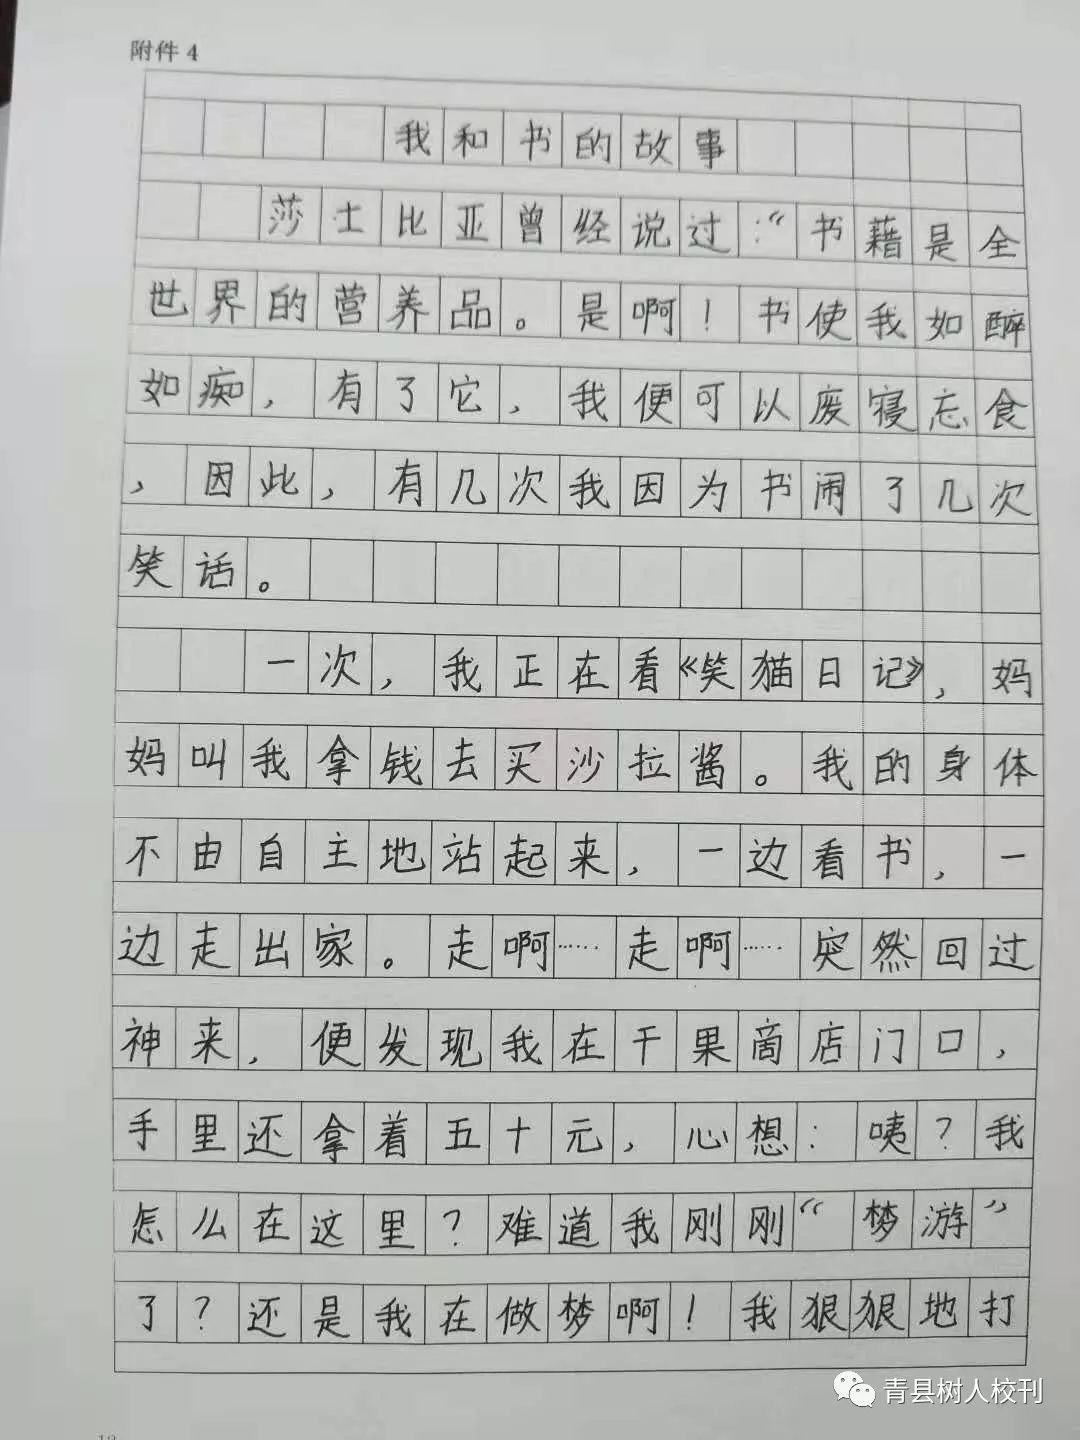 附件4
我和书的故事
莎士比亚曾经说过:“书藉是全
世界的营养品。是啊!书使我如醉
如痴,有了它,我便可以废寝忘食
,因此,有几次我因为书闹了几次
笑话。
一次,我正在看《笑猫日记》,妈
妈叫我拿钱去买沙拉酱。我的身体
不由自主地站起来,一边看书,一
边走出家。走啊……走啊……突然回过
神来,便发现我在干果商店门口,
手里还拿着五十元,心想:咦?我
怎么在这里?难道我刚刚“梦游”
了?还是我在做梦啊!我狠狠地打
青县树人校刊